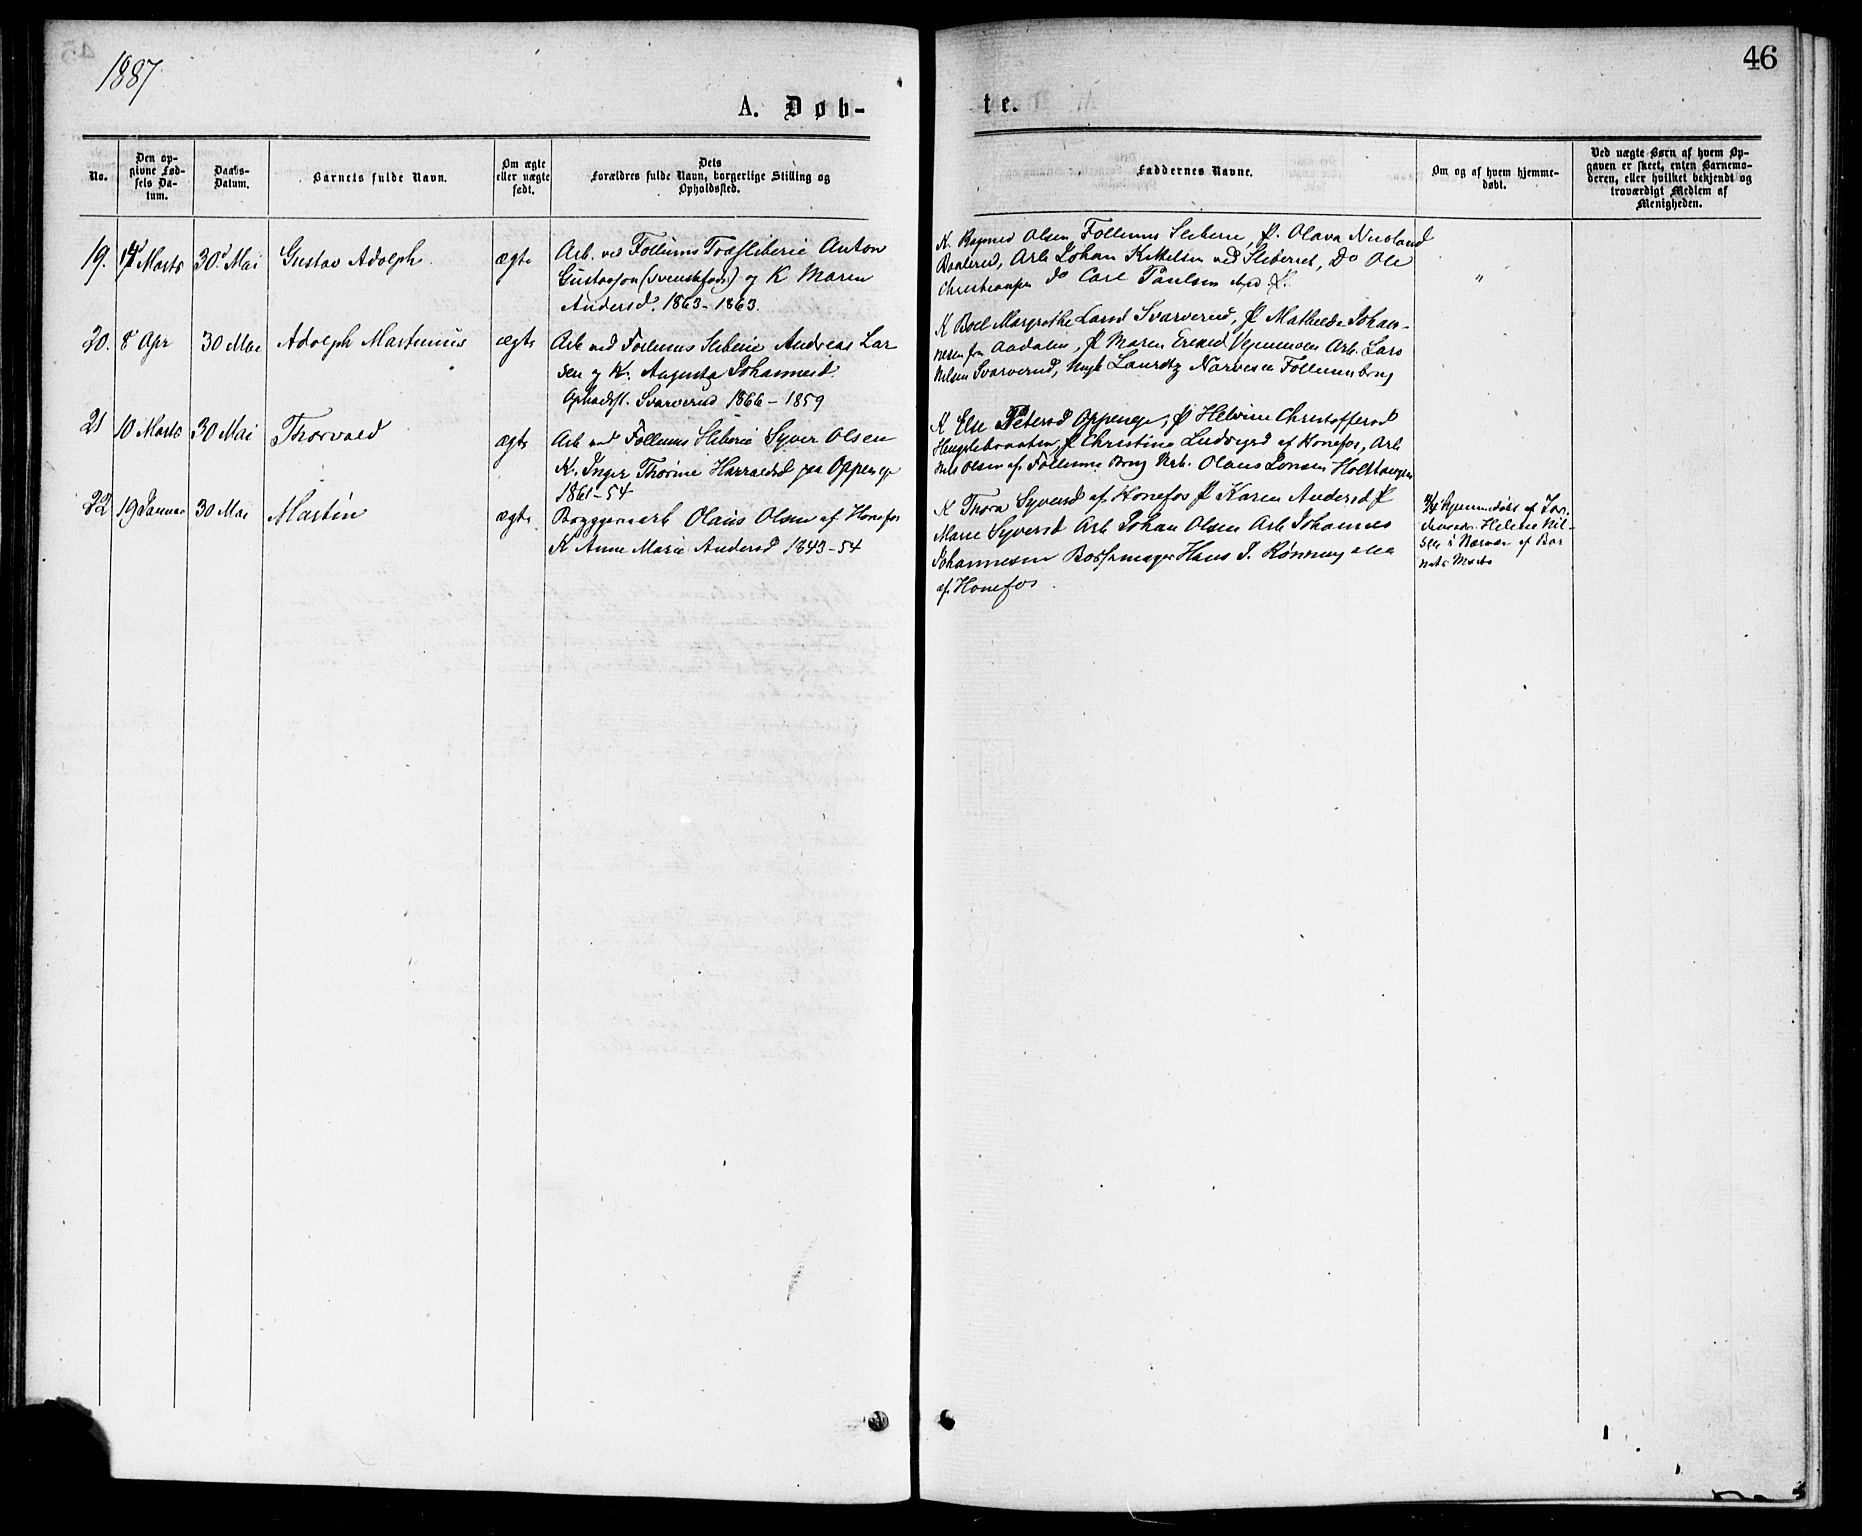 1887
46
A. Døb-
te.
No.
Den op-
givne Fød-
sels Da-
tum.
Daabs-
Datum.
Barnets fulde Navn.
Om ægte
eller uægte
født.
Dets
Forældres fulde Navn, borgerlige Stilling og
Opholdssted.
Faddernes Navne.
Om og af hvem hjemme-
døbt.
Ved uægte Børn af hvem Op-
gaven er skeet, enten Barnemo-
deren, eller hvilket bekjendt og
troværdigt Medlem af
Menigheden.
19.
Marts
30 Mai
Gustav Adolph
ægte
Arb. ved Follums Træsliberie Anton
Gustavson (Svenskfødt) og K Maren
Andersd. 1863-1863.
K. Olsen Follums Sliberie, P. Olava
Arb Johan Kittelsen ved Sliberiet, Do Ole
Do Carl Paulsen
"
20.
8 Apr
30 Mai
Adolph Martinius
ægte
Arb ved Follums Sliberie Andreas Lar
sen og K. Augusta Johannesd.
Opholdst. Svarverud 1866-1859
K Boel Margrethe Larsd Svarverud, P Mathilde Johan-
nesen fra Aadalen, P Maren Eriksd Arb. Lars
Nilsen Svarverud, Ungk Lauritz Narvesen Follumsbrug
21
10 Marts
30 Mai
Thorvald
ægte
Arb ved Follums Sliberie Syver Olsen
K. Inger Thorine Harraldsd paa Oppenege
1861-54
K Else Petersd Oppenege, P Helvine Christoffersd
P Christine Ludvigsd af Hønefos, Arb
Nils Olsen af Follums Brug Arb. Olaus Jonsen
22
19 Januar
30 Mai
Martin
ægte
Bryggeriarb Olaus Olsen af Hønefos
K Anne Marie Andersd 1843-54
K Thora Syversd af Hønefos P Karen Andersd P
Marie Syversd Arb Johan Olsen Arb Johannes
Johannesen Børstemager Hans J. Rønning alle
af Hønefos.
Hjemmedøbt af Jor-
demoder Helene Nil-
sen i Nærvær af Bar
nets Moder